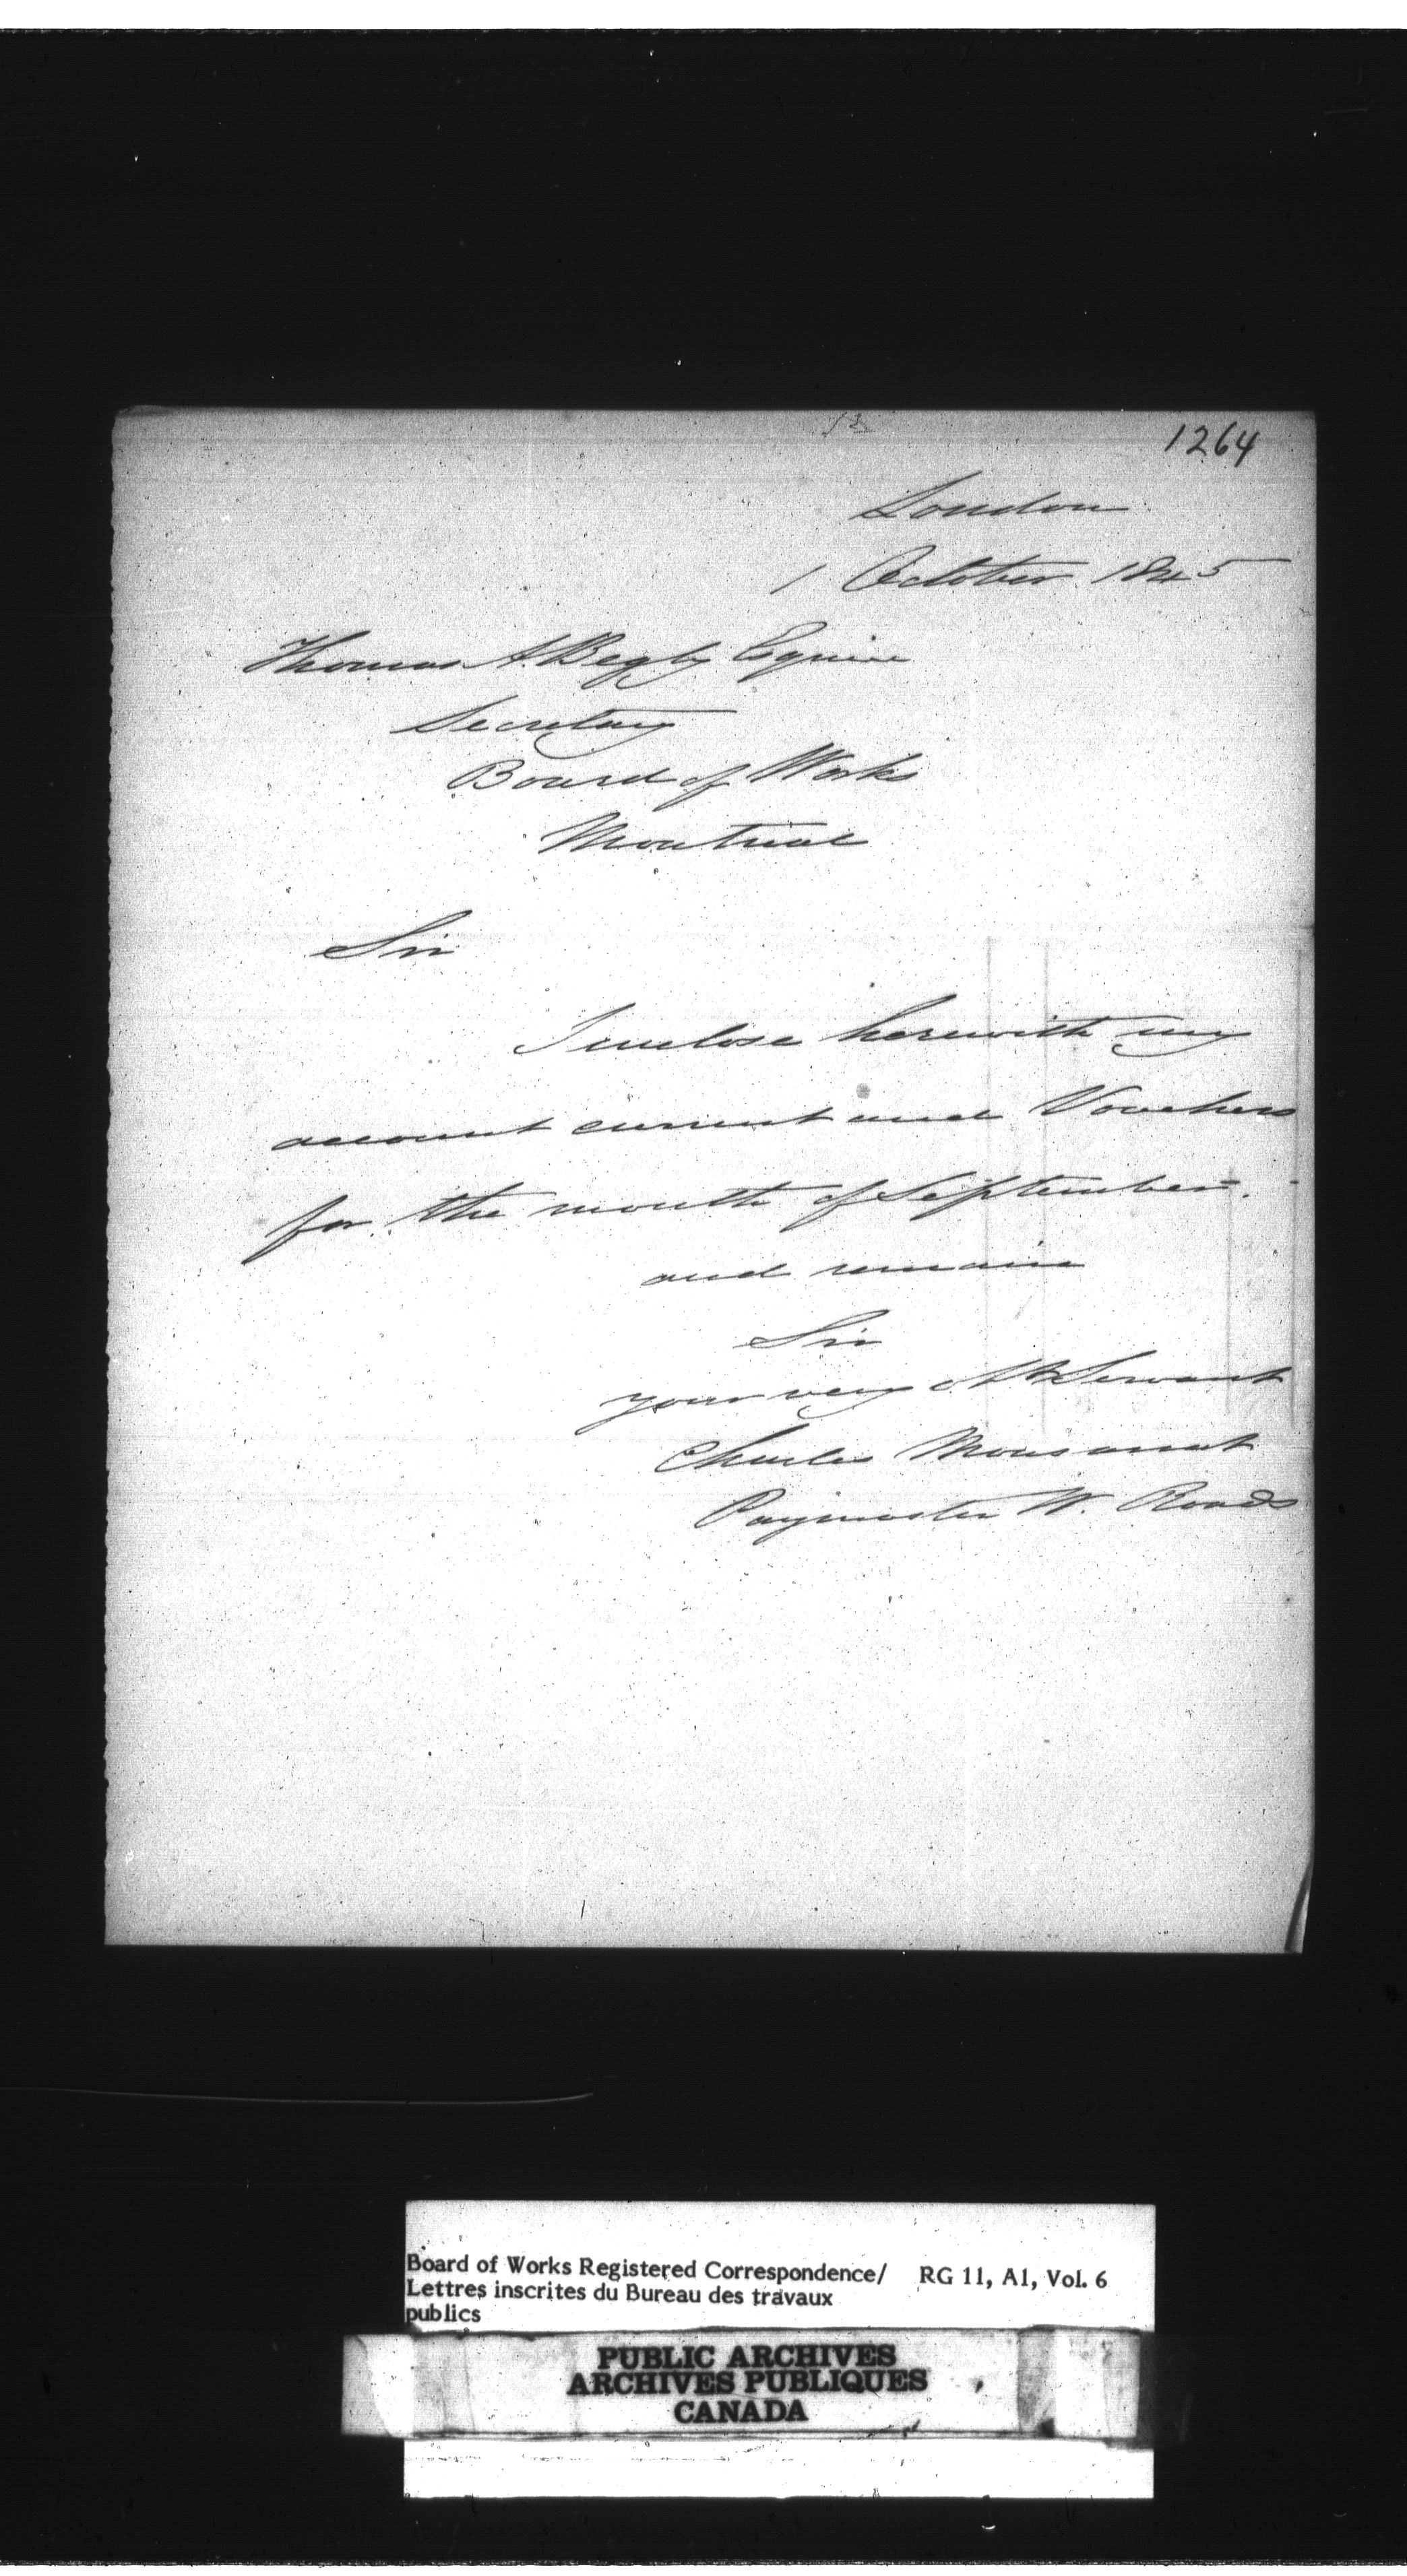 1264
London
1 October 1845
Thomas A. Begly Esquire
Secretary
Board of Works
Montreal
Sir
I inclose herewith my
account current and Vouchers
for the month of September.
and remain
Sir
your very Servant
Charles Monsarrat
Paymaster W. Roads
Board of Works Registered Correspondence/ RG 11, A1, Vol. 6
Lettres inscrites du Bureau des travaux
publics
PUBLIC ARCHIVES
ARCHIVES PUBLIQUES
CANADA